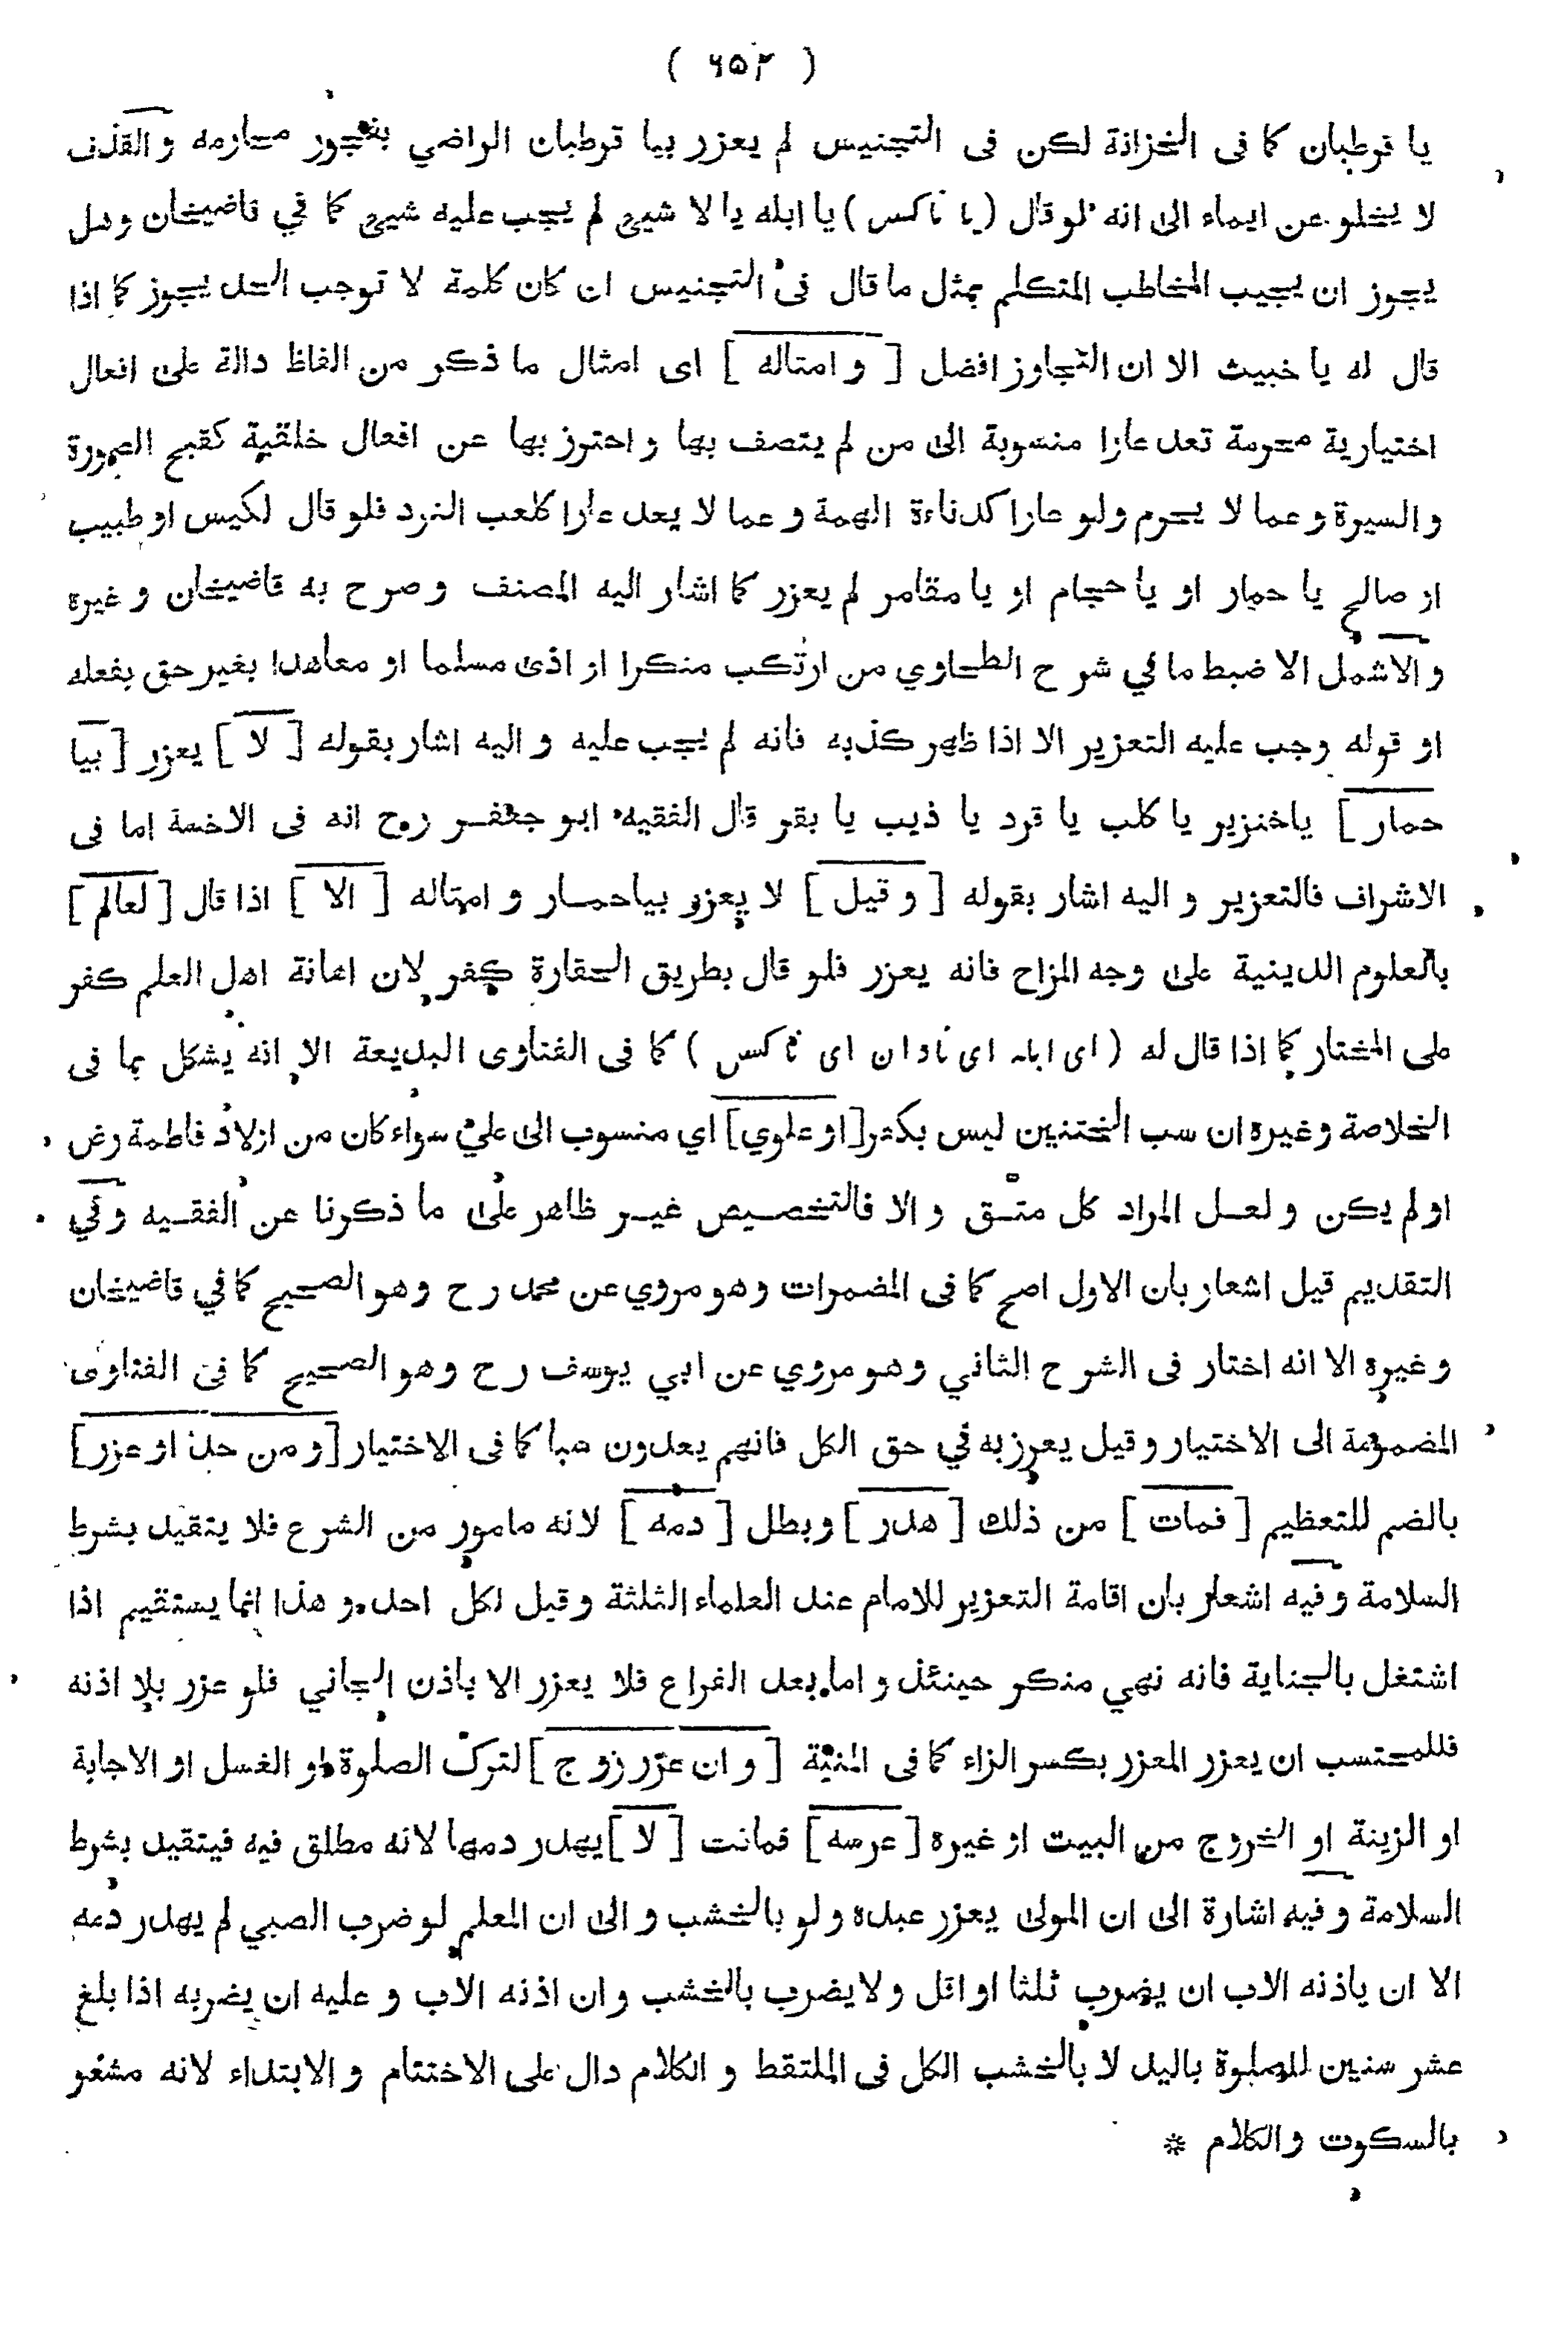 ( ٦٥٢ )
يا قرطبان كما فى الخزانة لكن فى التجنيس لم يعزر بيا قرطبان الراضي بفجور محارمه و القذف
لا يخلو عن ايماء الى انه لو قال ( يا ناكس ) يا ابله يا لا شيئ لم يجب عليه شيئ كما في قاضيخان وهل
يجوز ان يجيب المخاطب المتكلم بمثل ما قال فى التجنيس ان كان كلمة لا توجب الحد يجوز كما اذا
قال له يا خبيث الا ان التجاوز افضل [ و امثاله ] اى امثال ما ذكر من الفاظ دالة على افعال
اختيارية محرمة تعد عارا منسوبة الى من لم يتصف بها و احترز بها عن افعال خلقية كقبح الصورة
و السيرة و عما لا يحرم ولو عارا كدناءة الهمة و عما لا يعد عارا كلعب النرد فلو قال لكيس او طبيب
او صالح يا حمار او يا حجام او يا مقامر لم يعزر كما اشار اليه المصنف و صرح به قاضيخان و غيره
و الاشمل الاضبط ما في شرح الطحاوي من ارتكب منكرا او اذى مسلما او معاهدا بغير حق بفعله
او قوله وجب عليه التعزير الا اذا ظهر كذبه فانه لم يجب عليه و اليه اشار بقوله [ لا ] يعزر [ بيا
حمار ] ياخنزير يا كلب يا قرد يا ذيب يا بقر قال الفقيه ابو جعفر روح انه فى الاخسة اما فى
الاشراف فالتعزير و اليه اشار بقوله [ و قيل ] لا يعزر بياحمار و امثاله [ الا ] اذا قال [ لعالم ]
بالعلوم الدينية على وجه المزاح فانه يعزر فلو قال بطريق الحقارة كفر لان اهانة اهل العلم كفر
على المختار كما اذا قال له ( اى ابله اى نادان اى ناكس ) كما فى الفتاوى البديعة الا انه يشكل بما فى
الخلاصة وغيره ان سب الختنين ليس بكفر [ او علوي ] اي منسوب الى علي سواء كان من اولاد فاطمة رض
او لم يكن و لعل المراد كل متق و الا فالتخصيص غير ظاهر على ما ذكرنا عن الفقيه و في
التقديم قيل اشعار بان الاول اصح كما فى المضمرات وهو مروي عن محمد رح وهو الصحيح كما في قاضيخان
و غيره الا انه اختار فى الشرح الثاني وهو مروي عن ابي يوسف رح وهو الصحيح كما فى الفتاوى
المضمومة الى الاختيار و قيل يعزر به في حق الكل فانهم يعدون سبا كما فى الاختيار [ و من حد او عزر ]
بالضم للتعظيم [ فمات ] من ذلك [ هدر ] و بطل [ دمه ] لانه مامور من الشرع فلا يتقيد بشرط
السلامة و فيه اشعار بان اقامة التعزير للامام عند العلماء الثلثة و قيل لكل احد و هذا انما يستقيم اذا
اشتغل بالجناية فانه نهي منكر حينئذ و اما بعد الفراغ فلا يعزر الا باذن الجاني فلو عزر بلا اذنه
فللمحتسب ان يعزر المعزر بكسر الزاء كما فى المنية [ و ان عزّر زوج ] لترك الصلوة او الغسل او الاجابة
او الزينة او الخروج من البيت او غيره [ عرسه ] فماتت [ لا ] يهدر دمها لانه مطلق فيه فيتقيد بشرط
السلامة و فيه اشارة الى ان المولى يعزر عبده و لو بالخشب و الى ان المعلم لو ضرب الصبي لم يهدر دمه
الا ان ياذنه الاب ان يضرب ثلثا او اقل و لا يضرب بالخشب و ان اذنه الاب و عليه ان يضربه اذا بلغ
عشر سنين للصلوة باليد لا بالخشب الكل فى الملتقط و الكلام دال على الاختتام و الابتداء لانه مشعر
بالسكوت و الكلام *